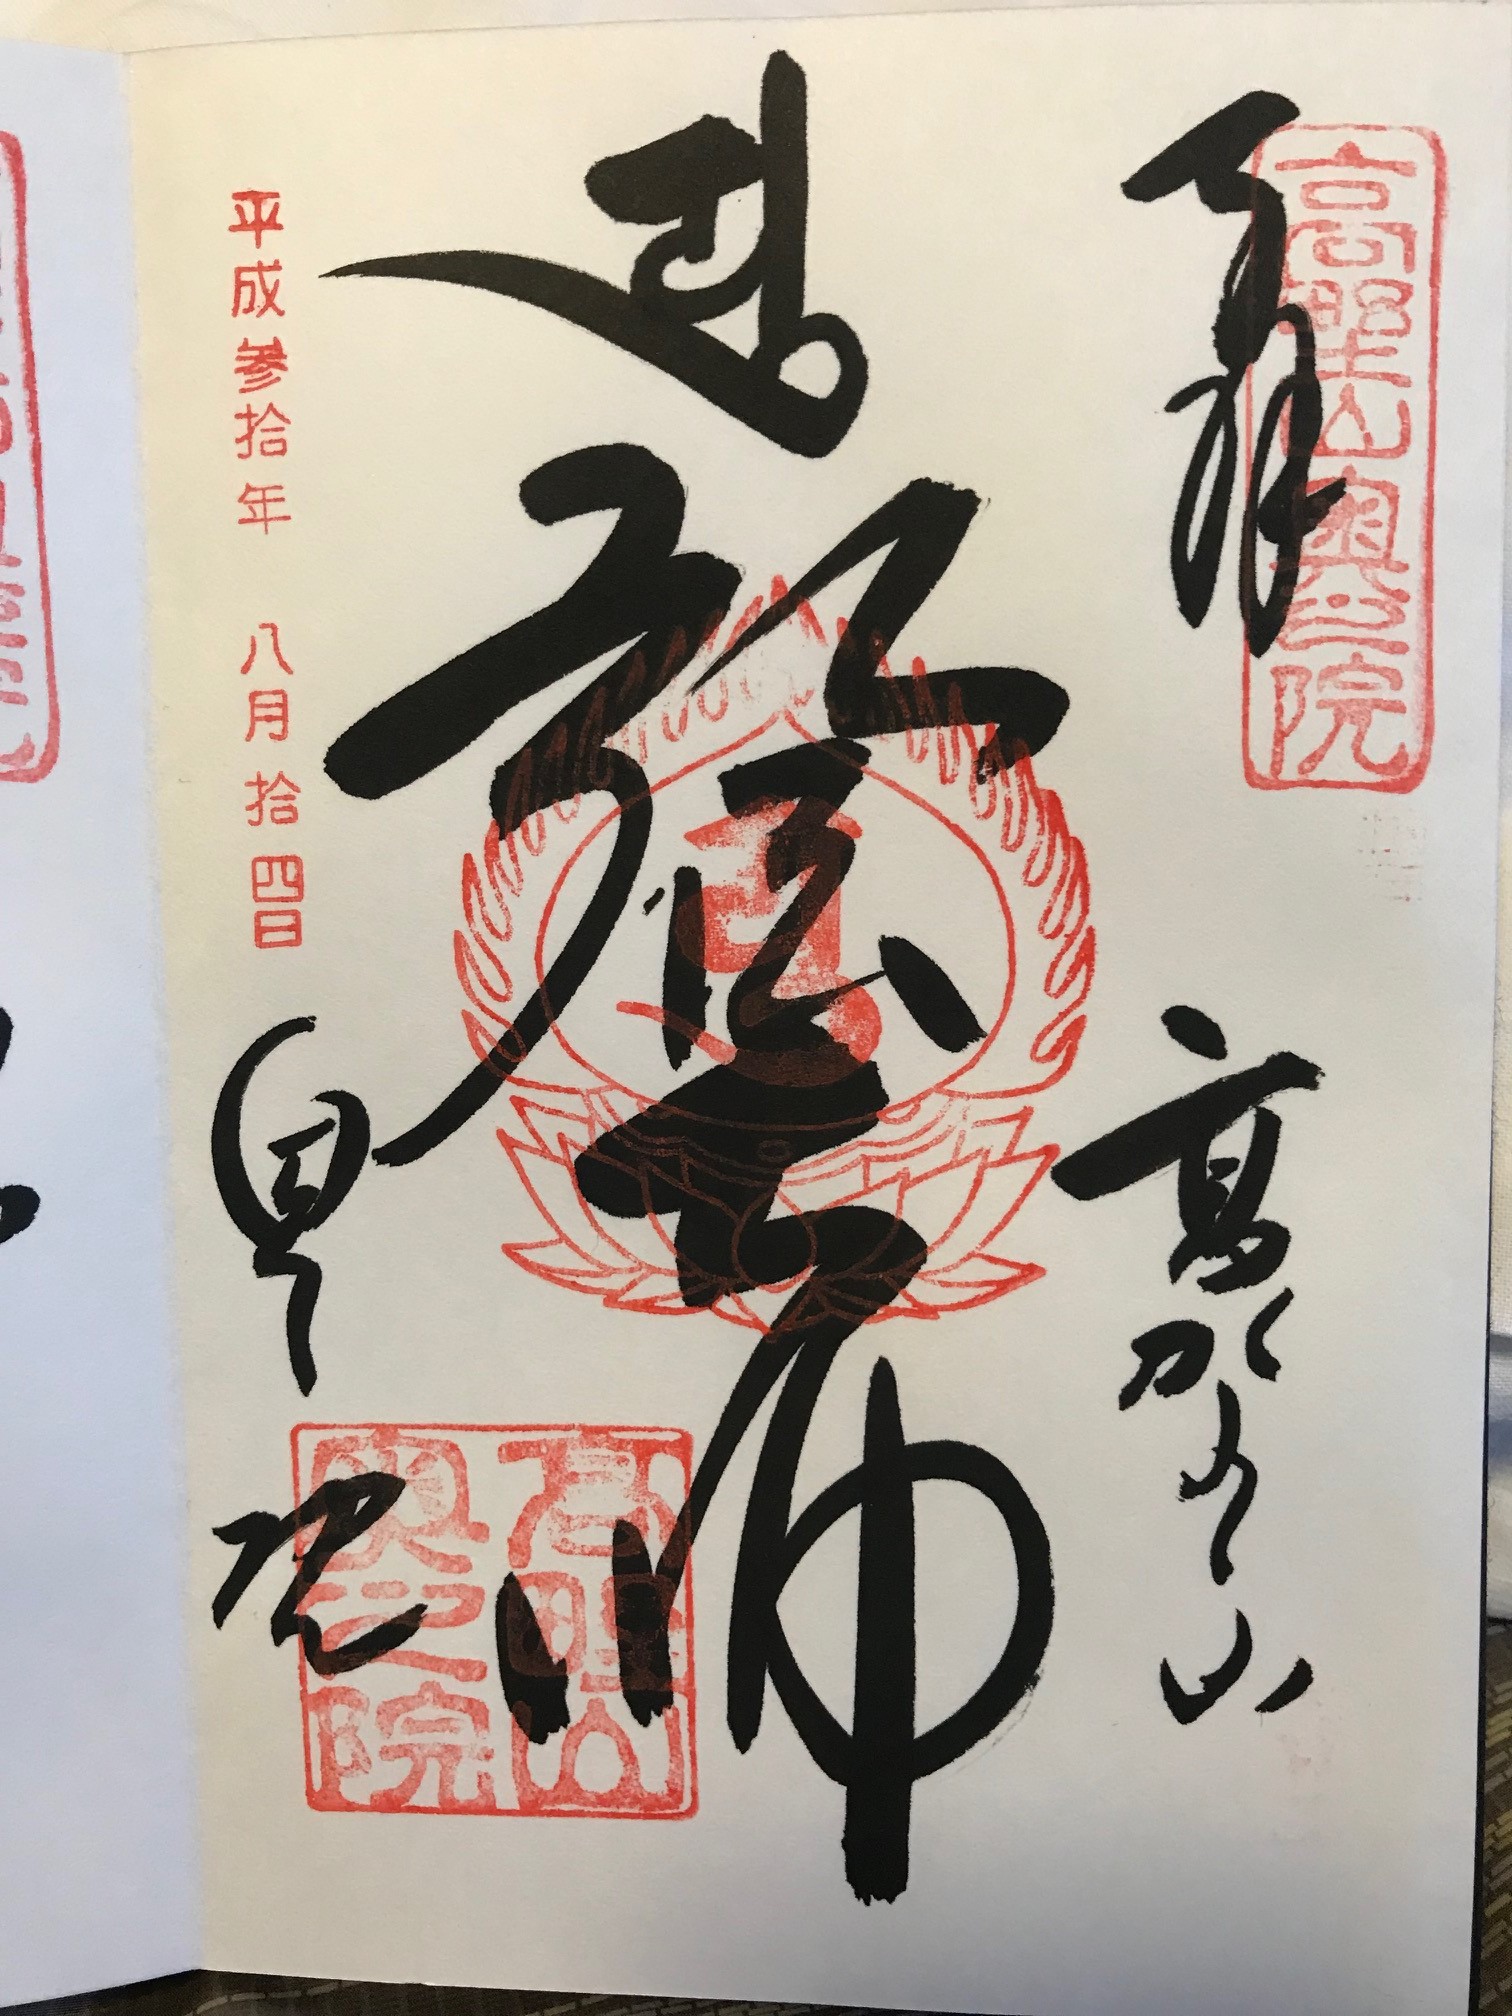 高野山奥之院
奉拝
高野山
弘法大師
平成参拾年 八月拾四日
奥院
高野山
奥之院